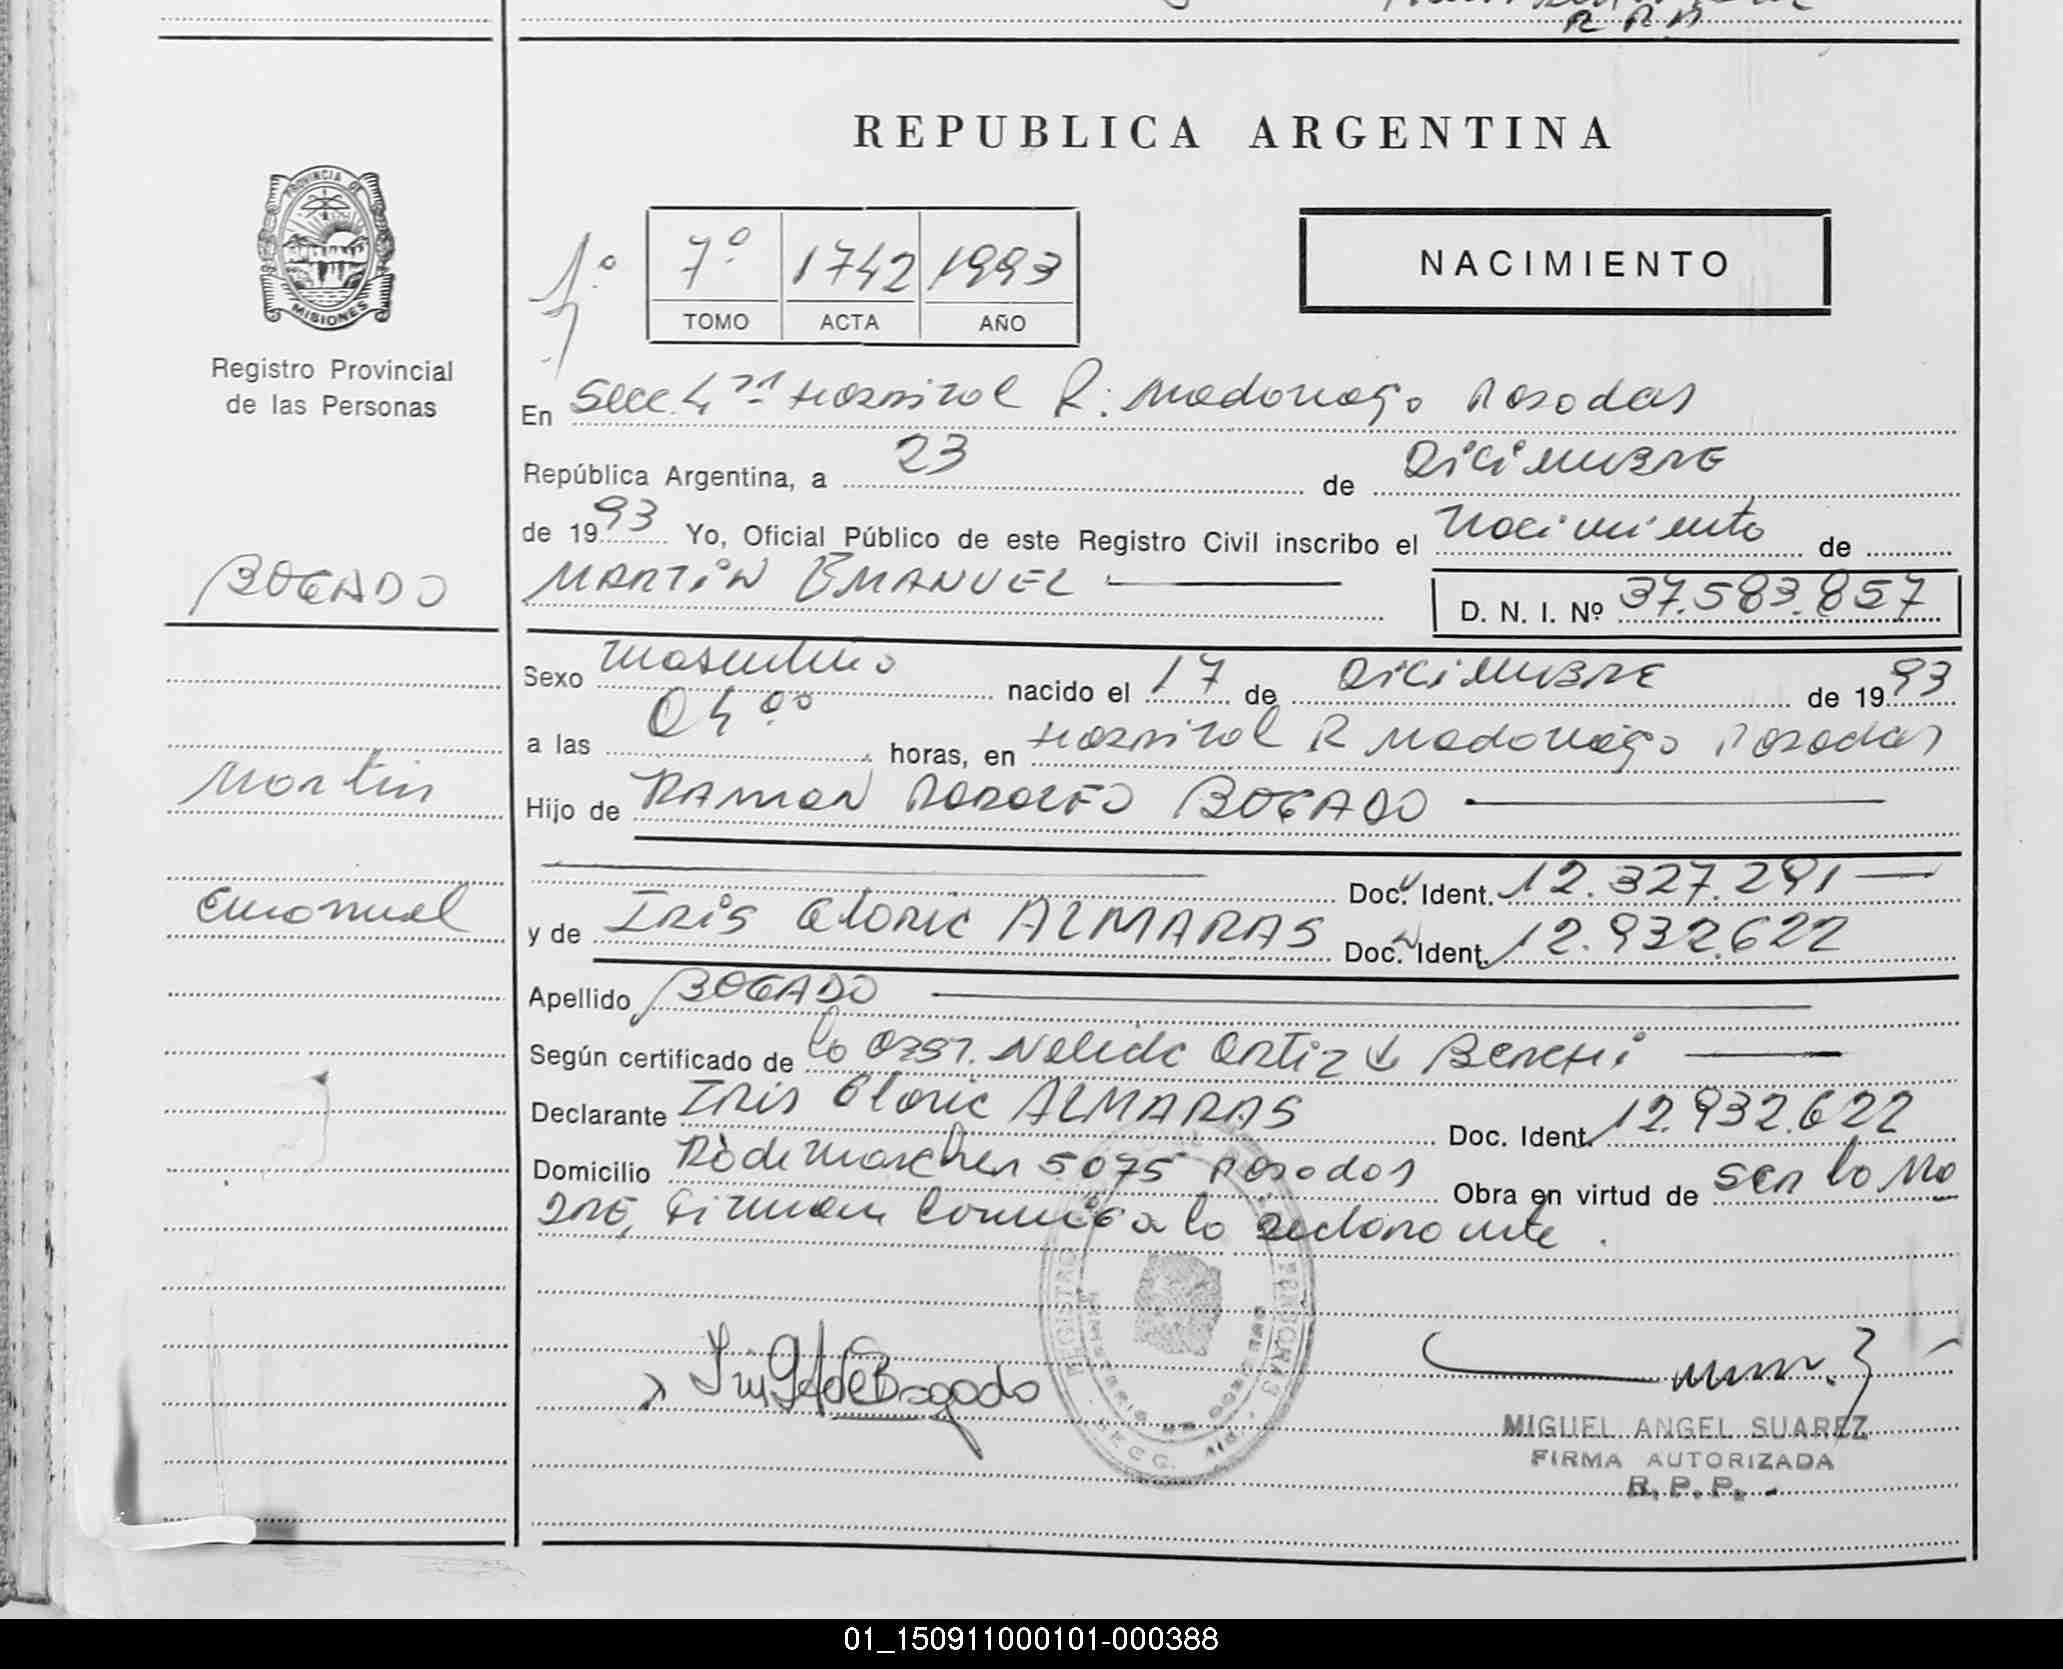 R.R.P
REPUBLICA ARGENTINA
PROVINCIA DE
MISIONES
Registro Provincial
de las Personas
1º
7º 1742 1993
TOMO ACTA AÑO
NACIMIENTO
En Secc. 4ta Hospital R. Madariaga Posadas
República Argentina, a 23 de Diciembre
de 1993 Yo, Oficial Público de este Registro Civil inscribo el Nacimiento de
BOGADO
MARTIN EMANUEL
D. N. I. Nº 37.583.857
Sexo Masculino nacido el 17 de Diciembre de 1993
a las 04 00 horas, en Hospital R Madariaga Posadas
Martin
Hijo de RAMON RODOLFO BOGADO
Doc. Ident. 12.327.291
Emanuel
y de IRIS Gloria ALMARAS Doc. Ident. 12.932.622
Apellido BOGADO
Según certificado de la Obst. Nelida Ortiz de
Declarante IRIS Gloria ALMARAS Doc. Ident. 12.932.622
Domicilio 5075 Posadas Obra en virtud de ser la Ma
dre, Firman conmigo la declarante.
REGISTRO PERSONAS
MINISTERIO DE GOBIERNO
SECC.
Iris G A de Bogado
MIGUEL ANGEL SUAREZ
FIRMA AUTORIZADA
R. P. P.
01_150911000101-000388